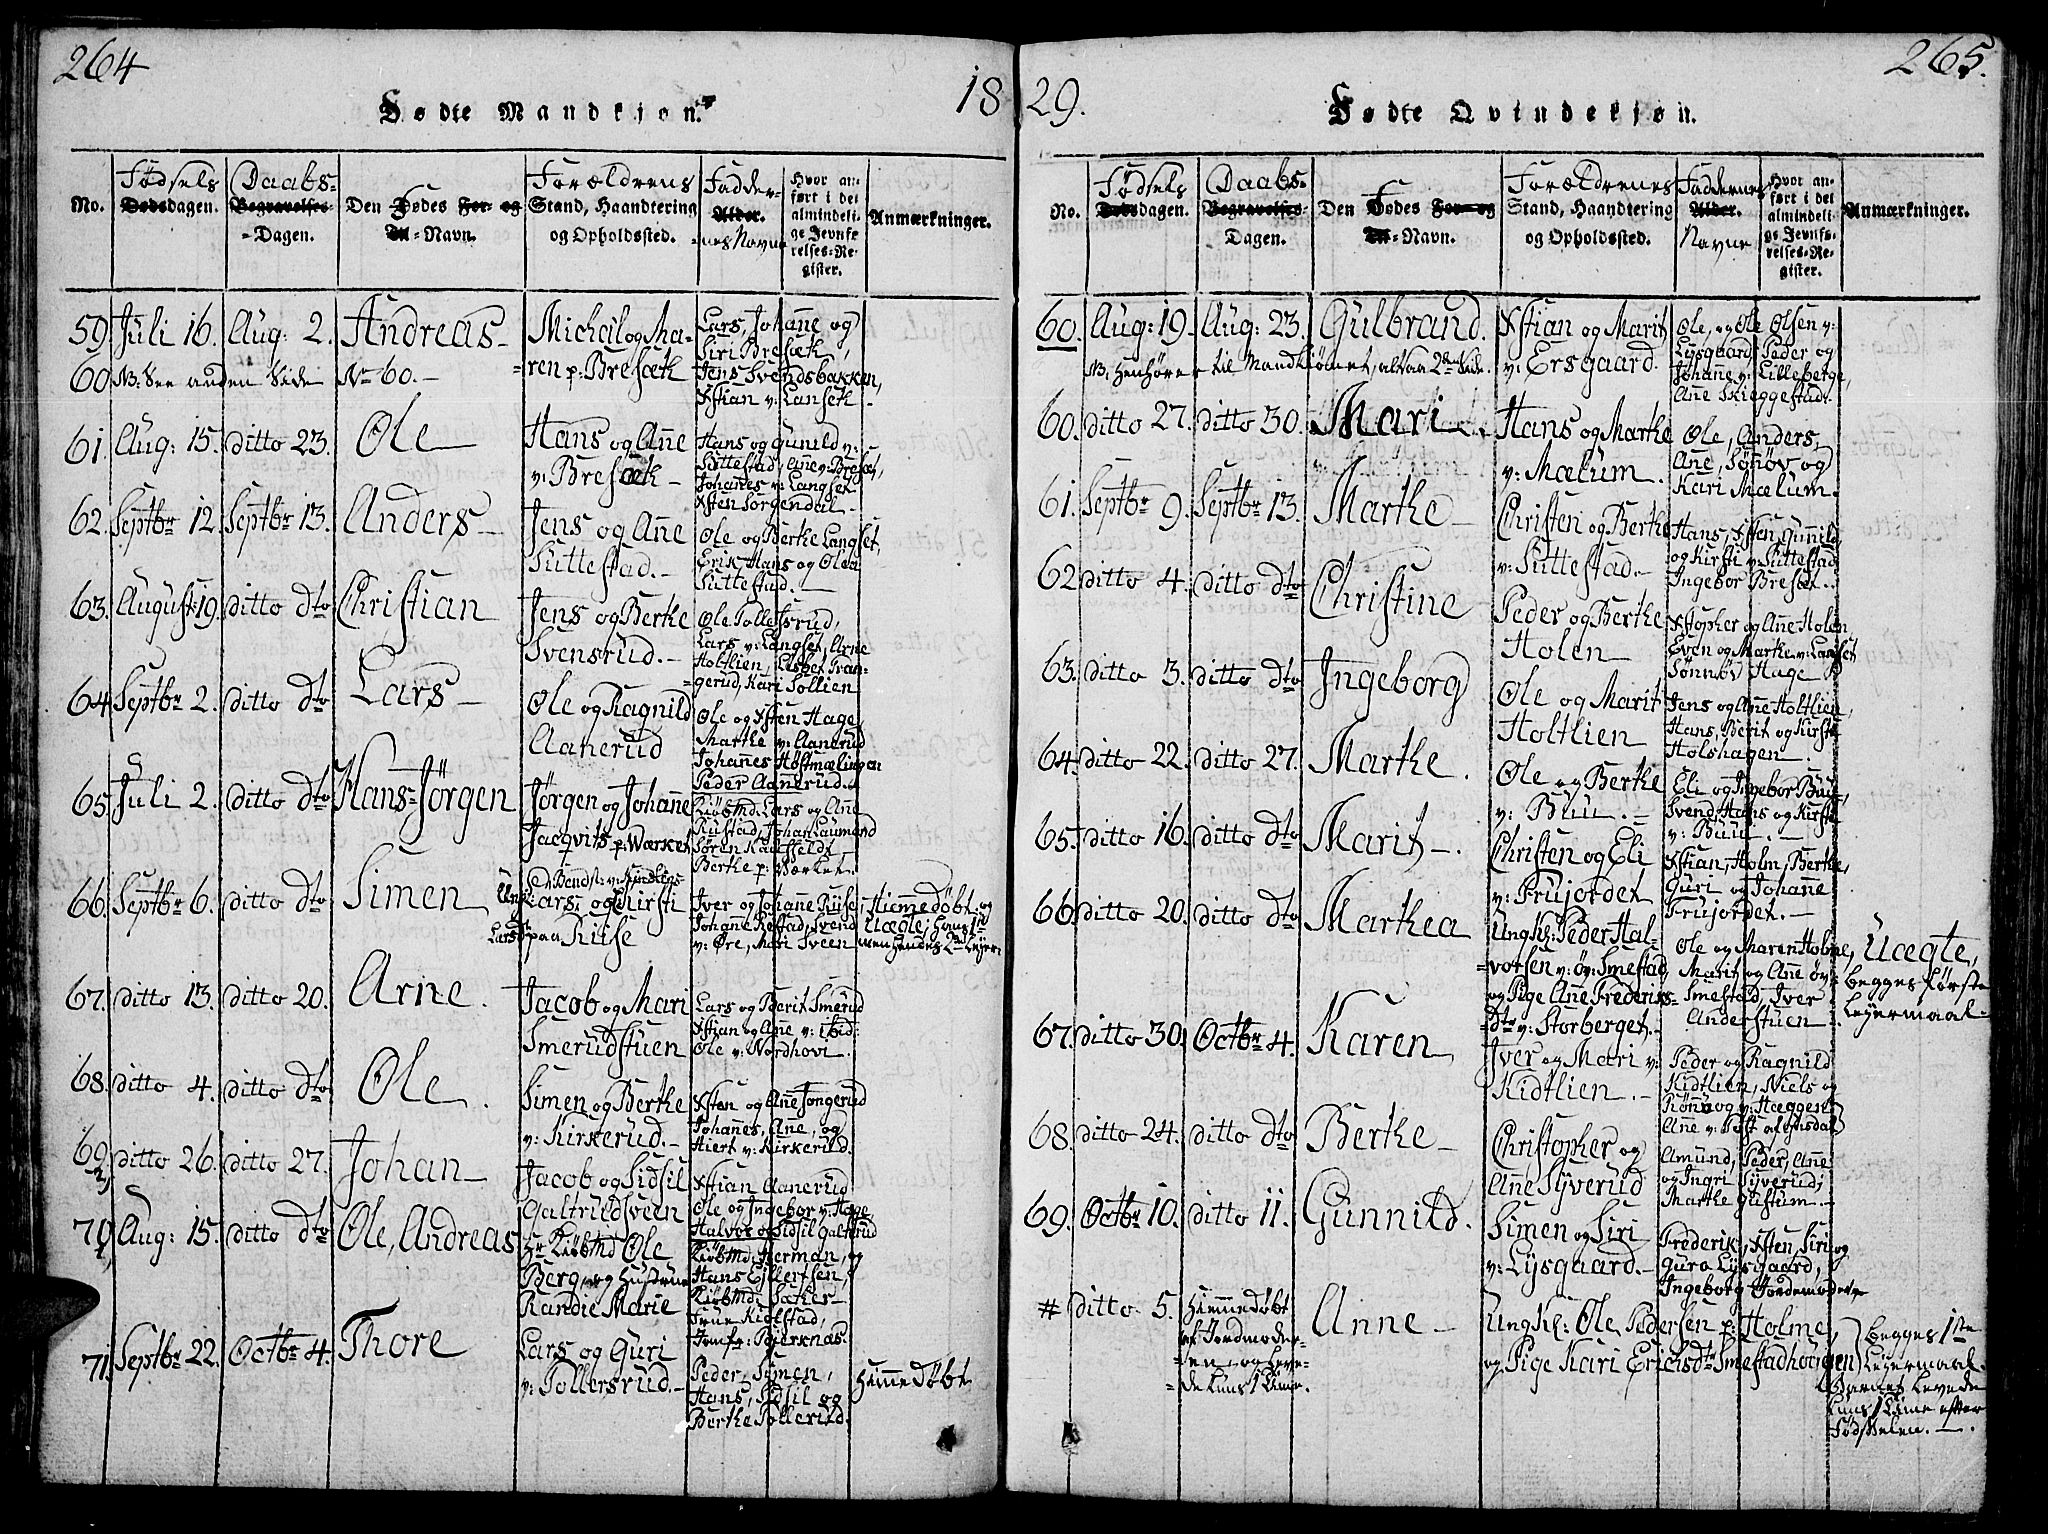 264
18
Fødte Mandkjøn.
No.
Fødsels
Dødsdagen.
Daabs-
Begravelses-
-Dagen.
Den Fødes For- og
Til-Navn.
Forældrens
Stand, Haandtering
og Opholdssted.
Fadder-
Alder.
-nes Navne
Hvor an-
ført i det
almindeli-
ge Jevnfø-
relses-Re-
gister.
Anmærkninger.
59. Juli 16. Aug: 2. Andreas-
Michail og Ma-
ren p: Bresæk
Lars, Johanne og
Siri Bresæk,
Jens Svendsbakken,
Xstian v: Langsæk
60 NB: See anden Side No 60.-
61. Aug: 15. ditto 23. Ole
Hans og Ane
v: Bresæk-
Hans og Gunild v:
Suttestad, Ane v: Breset,
Johannes v: Langset
Xsten Sorgendal-
62. Septbr 12. Septbr 13. Anders-
Jens og Ane
Suttestad.-
Ole og Berthe Langset,
Erik, Hans og Olea
Suttestad.
63. August 19. ditto dto Christian
Jens og Berthe
Svensrud.-
Ole Tollefsrud,
Lars v: Langset, Arne
Holtlien, Lisbet Tran-
gerud, Kari Sollien
64 Septbr 2. ditto dto Lars-
Ole og Ragnild
Aanerud
Ole og Xsten Hage
Marthe v: Aanerud
Johanes Høstmælingen
Peder Aanerud.
65. Juli 2. ditto dto Hans-Jörgen
Jörgen og Johanne
Jacqvits p: Værket
Kiöbmd: Lars og Ane
Rustad, Johan Laumand
Sören Kauffeldt
Berthe p: Værket.
66. Septbr 6. ditto dto Simen
Lars og Kirsti
paa Riise
Iver og Johanne Riise
Johanne Refstad, Svend
v: Øre, Mari Sveen
Hiemmedøbt og
Uægte, Hans 1st
men Hendes 2det Leyer:
67. ditto 13. ditto 20. Arne.
Jacob og Mari
Smerudstuen
Lars og Berit Smerud
Xstian og Ane v: ibid:
Ole v: Nordhovi
68. ditto 4. ditto dto Ole.
Simen og Berthe
v: Kirkerud.-
Xsten og Ane Songerud
Johannes, Ane, og
Hiert v: Kirkerud.
69 ditto 26. ditto 27. Johan-
Jacob og Sidsil
Galtrudsveen
Xstian Aanerud
Ole og Ingebor v: Hage
Halvor og Sidsil Galterud
70 Aug: 15. ditto dto Ole, Andreas
Hr Kiöbmd Ole
Berg, og Hustrue
Randie Marie
Kiöbmd: Herman, og
Hans Ejlertsen,
Kiöbmd: Saker-
Frue Kidlstad,
Jomfr: Bierknæs.
71. Septbr 22. Octbr 4. Thore
Lars og Guri
v: Tollersrud.-
Peder, Symen,
Hans, Sidsil og
Berthe Tollerud.
Hiemmedøbt
265.
29.
Fødte Qvindekjøn.
No.
Fødsels
Dødsdagen.
Daabs-
Begravelses-
Dagen.
Den Fødes For- og
Til-Navn.
Forældrenes
Stand, Haandtering
og Opholdssted.
Faddernes
Alder.
Navne
Hvor an-
ført i det
almindeli-
ge Jevnfø-
relses-Re-
gister.
Anmærkninger.
60. Aug: 19. Aug: 23. Gulbrand.
NB: Henhörer til Mandkiönnet, altsaa 2den Side.
Xstian og Marit
v: Ersgaard.
Ole, og Ole Olsen v:
Lysgaard, Peder og
Johanne v: Lilleberge,
Ane Skieggestad.
60. ditto 27. ditto 30. Mari.
Hans og Marthe
v: Mælum.
Ole, Anders,
Ane, Sönöv og
Kari Mælum.
61. Septbr 9. Septbr 13. Marthe-
Christen og Berthe
v: Suttestad.-
Hans, Xsten, Gunnild
og Kirsti v: Suttestad
Ingebor Breset.
62 ditto 4. ditto dto Christine
Peder og Berthe
Holen
Xstopher og Ane Holen
Even og Marthe v: Langset
Sönnöv Hage
63. ditto 3. ditto dto Ingeborg
Ole og Marit
Holtlien
Jens og Ane Holtlien,
Hans, Berit og Kirsti
Holshagen
64. ditto 22. ditto 27. Marthe.
Ole og Berthe
v: Buu.-
Eli og Ingebor Buu,
Svend, Hans og Kirsti
v: Buu.
65. ditto 16. ditto dto Marit-.
Christen og Eli
v: Frujordet
Xstian, Holm, Berthe,
Guri og Johanne
Frujordet.-
66. ditto 20. ditto dto Marthea
Ungk: Peder Hal-
vorsen v: öv: Smestad
og Pige Ane Frederics-
dtr v: Storberget.-
Ole og Maren Holme,
Marit og Ane öv-
Smestad, Iver
Anderstuen
Uægte,
begges förste
Leyermaal.
67. ditto 30. Octbr 4. Karen
Iver og Mari v:
Kidtlien.
Peder og Ragnild
Kidtlien, Niels og
Rönnog v: Hæggen
Ane v:
68. ditto 24. ditto dto Berthe-
Christopher og
Ane Syverud
Amund, Peder, Ane
og Ingri Syverud,
Marthe Gustum-
69. Octbr 10. ditto 11. Gunnild.
Simen og Siri
v: Lysgaard.-
Frederik, Xsten, Siri og
Gura Lysgaard,
Ingeborg Jordemoder
# ditto 5. Hiemmedøbt
af Jordmode-
ren, og leve-
de kuns 1 Time.
Anne-
Ungk: Ole Pedersen p: Holme,
og Pige Kari Erichsdtr Smestadhougen
begges 1ste
Leyermaal.
Barnet levede
kuns 1 Time efter
Fødselen.-